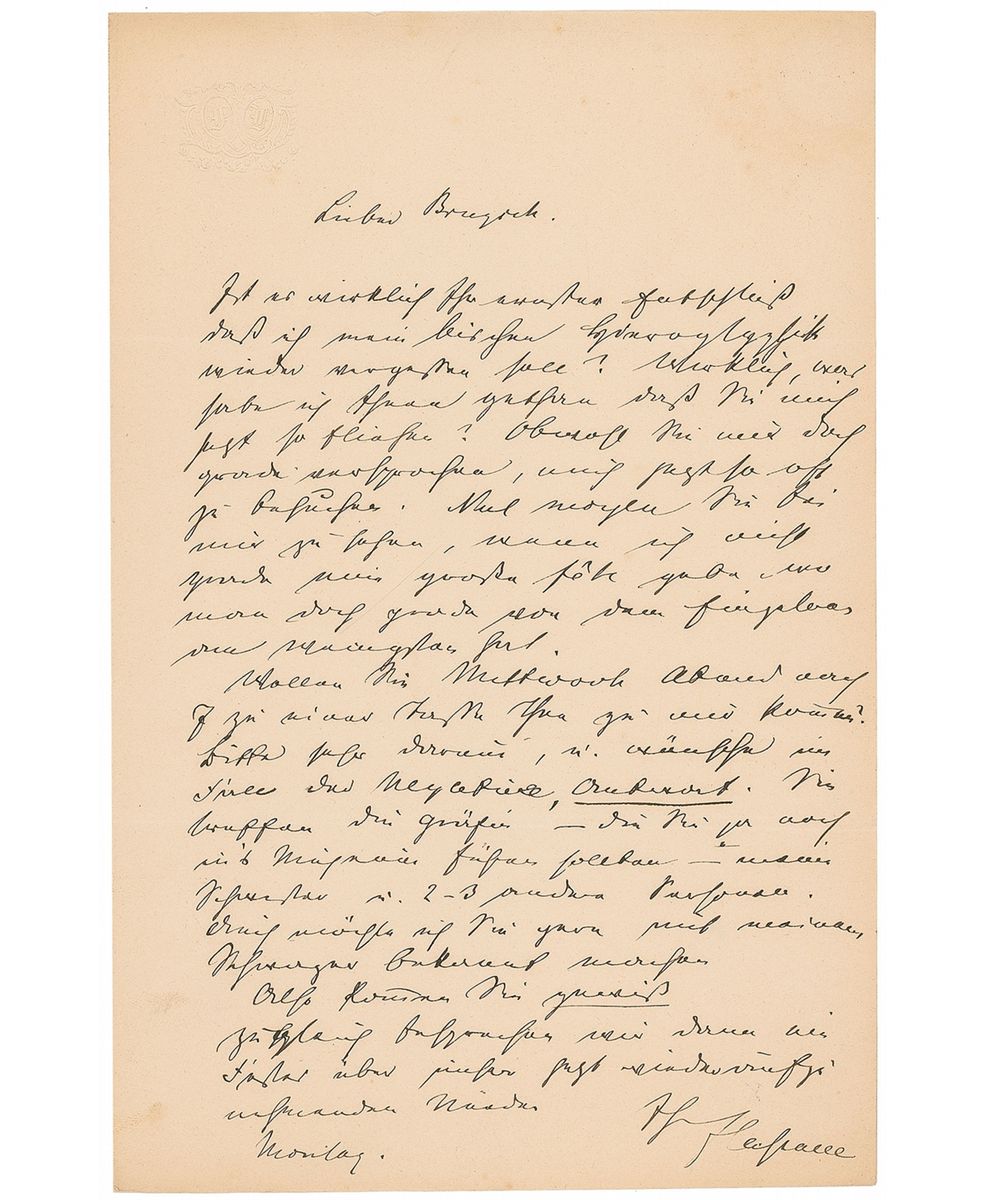 Lieber Brugsch.
Ist es wirklich Ihr ernster Entschluß
daß ich mein bischen Hieroglyphik
wieder vergessen soll? Wirklich, was
habe ich Ihnen gethan daß Sie mich
jetzt so fliehen? Obwohl Sie mir doch
grade versprochen, mich jetzt so oft
zu besuchen. Und mögen Sie bei
mir zu sehen, wenn ich nicht
grade eine große fête gebe, wo
man doch grade von dem Einzelnen
am wenigsten hat.
Wollen Sie Mittwoch Abend nach
7 zu einer Tasse Thee zu mir kommen.
Bitte sehr darum, u. wünsche im
Falle der Negative, Antwort. Sie
treffen die Gräfin – die Sie ja noch
in's Museum führen sollten – meine
Schwester u. 2-3 andere Personen.
Auch möchte ich Sie gern mit meinem
Schwager bekannt machen
Also kommen Sie gewiß
zugleich besprechen wir dann ein
Festes über unser jetzt wieder aufzu
nehmenden Studien
Ihr FLassalle
Montag.